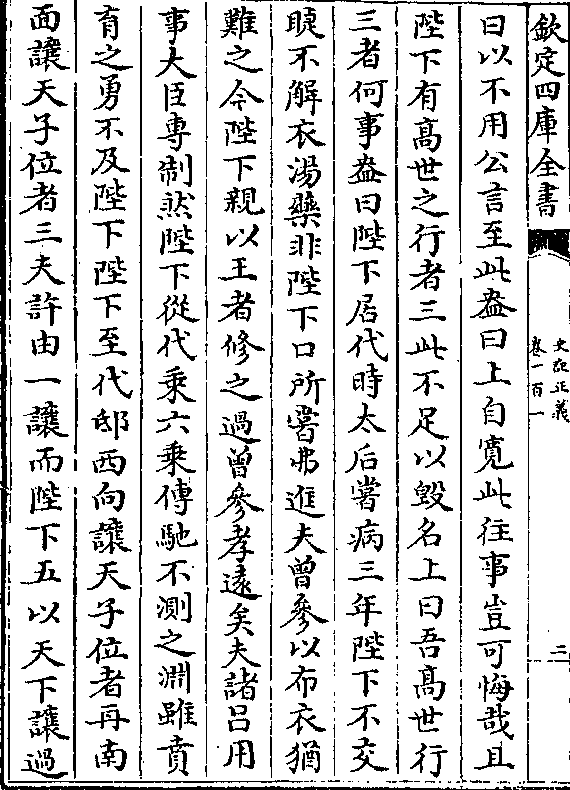 欽定四庫全書
史記正義
卷一百一
三
曰以不用公言至此盎曰上自寛此往事豈可悔哉且
陛下有髙世之行者三此不足以毁名上曰吾髙世行
三者何事盎曰陛下居代時太后嘗病三年陛下不交
睫不解衣湯藥非陛下口所嘗弗進夫曾參以布衣猶
難之今陛下親以王者修之過曾參孝逺矣夫諸吕用
事大臣専制然陛下從代乘六乘傳馳不測之淵雖賁
育之勇不及陛下陛下至代邸西向讓天子位者再南
面讓天子位者三夫許由一讓而陛下五以天下讓過